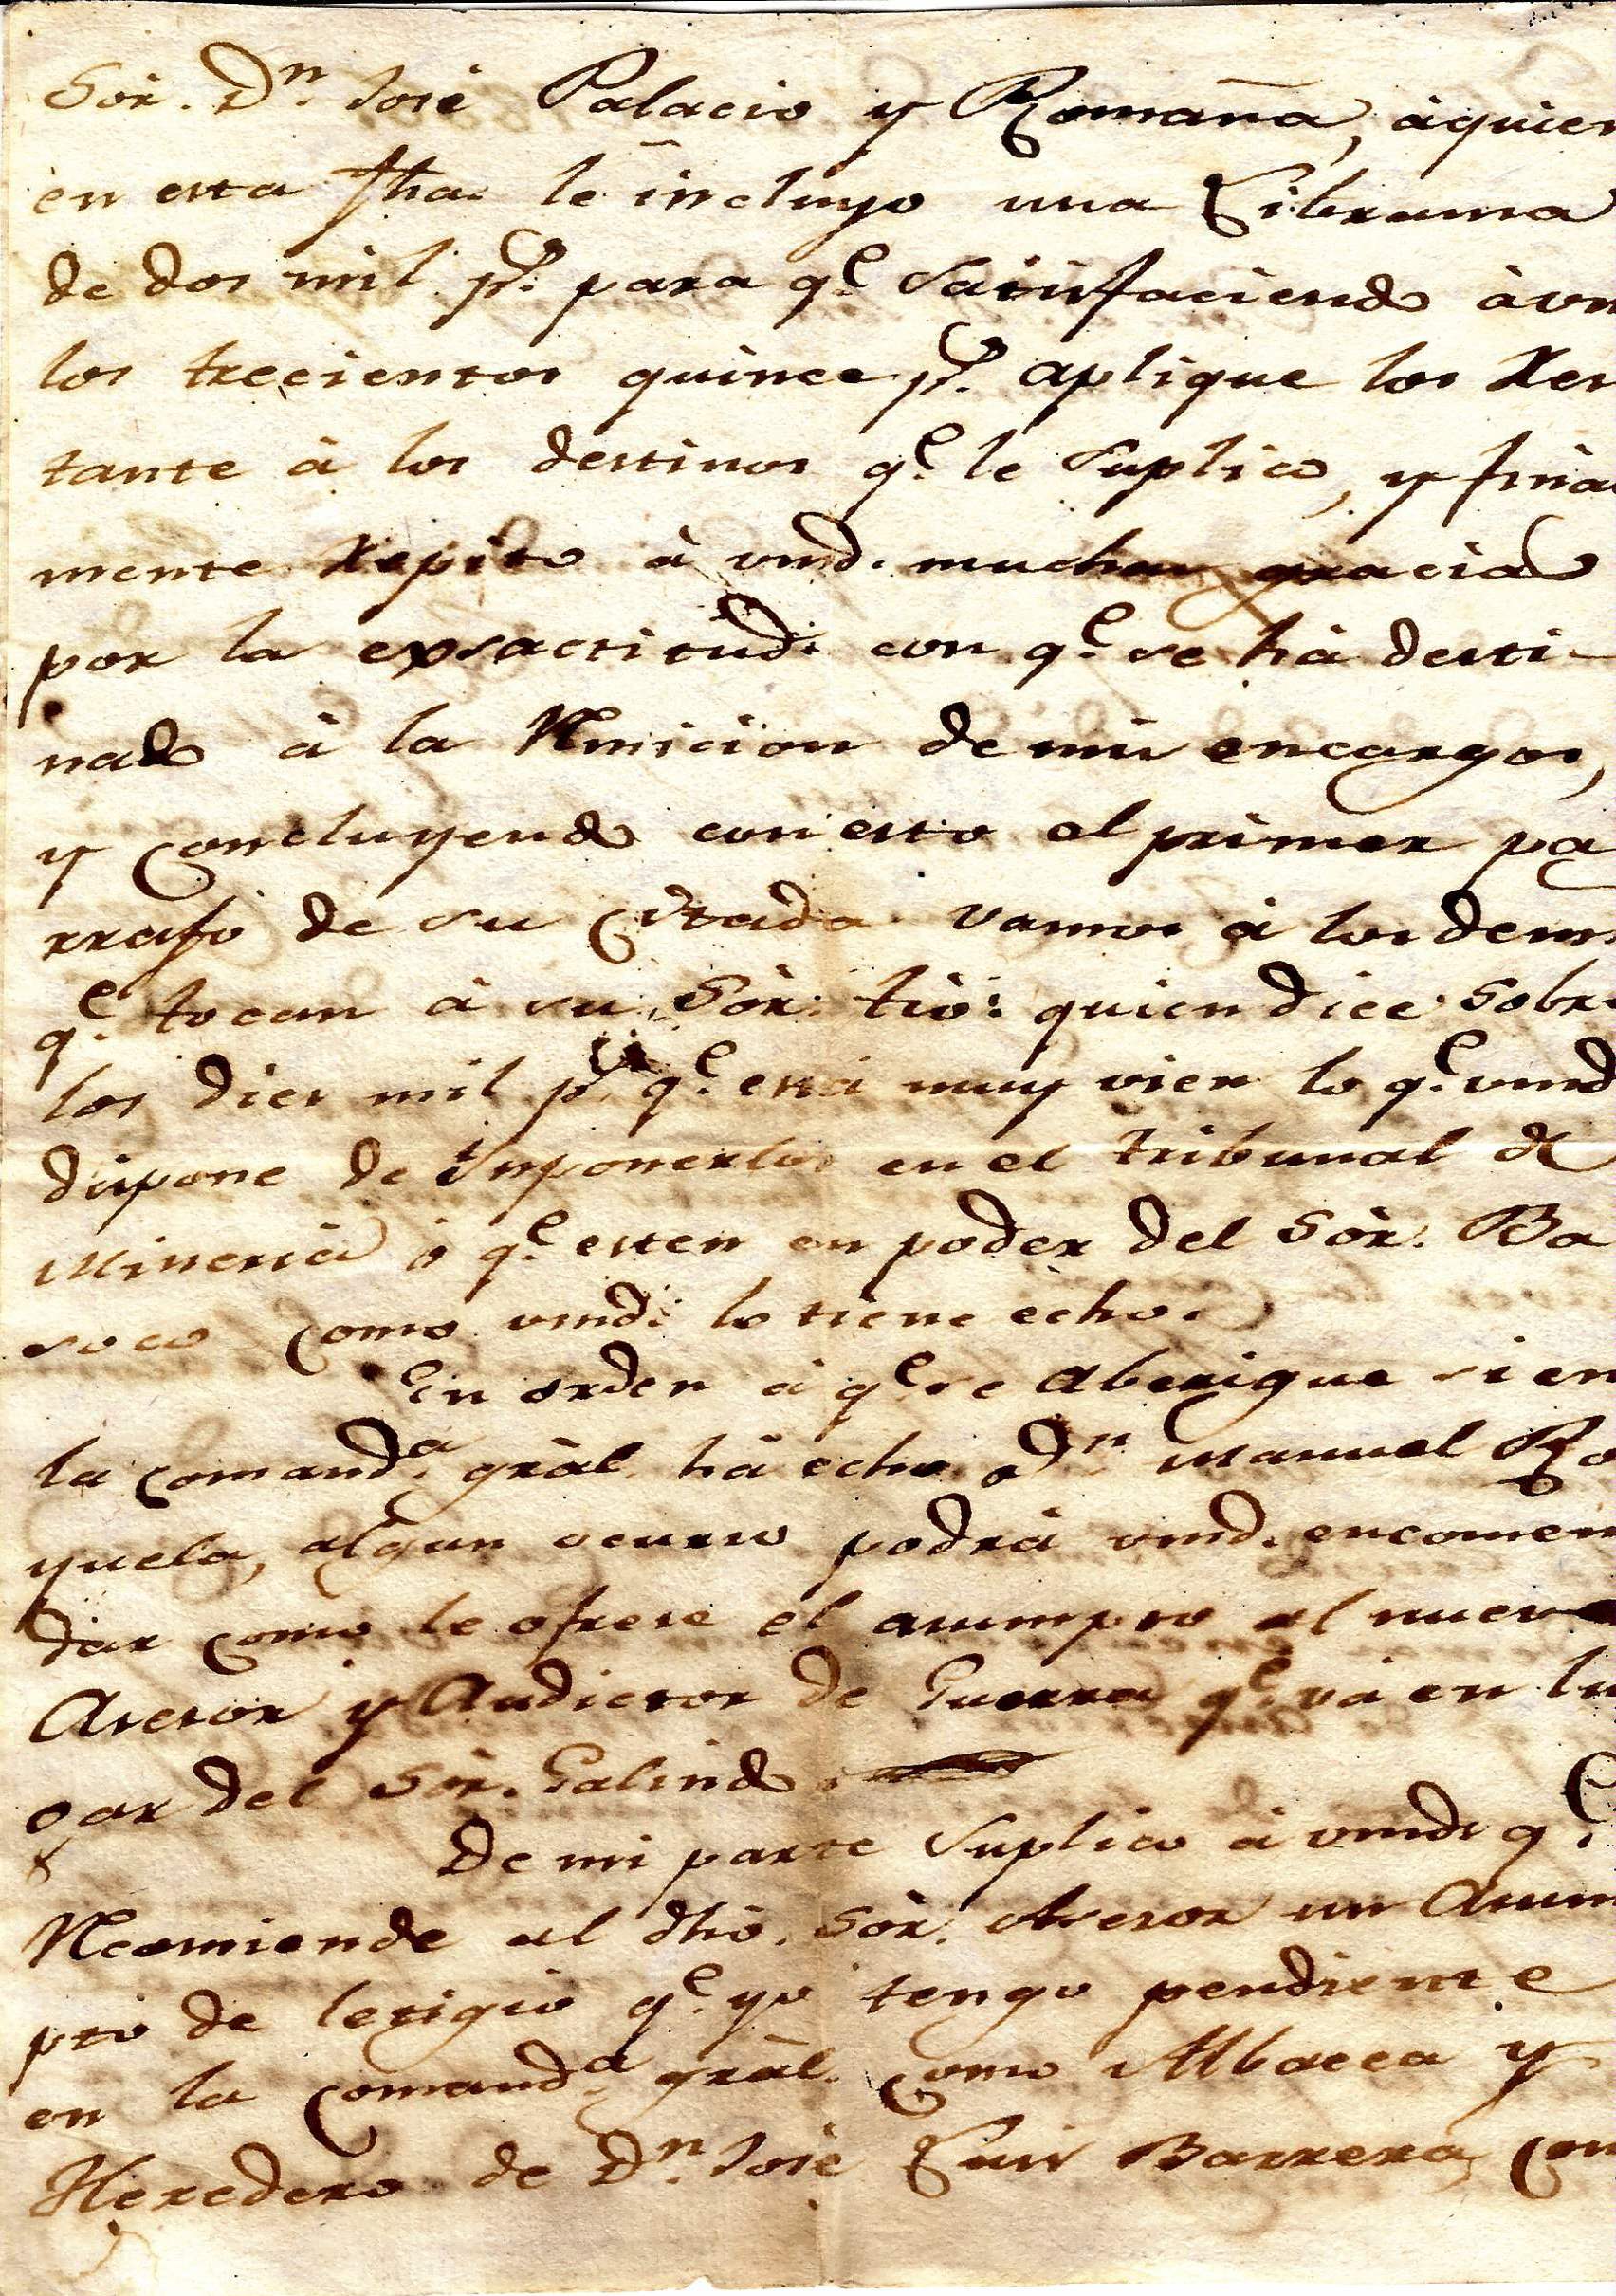 Sór. Dn. José Palacio y Romaña, á quien
en esta fha. le incluyo una Libransa
de dos mil ps. para qe. satisfaciendo á vm
los trecientos quince ps. aplique los res
tante á los destinos qe. le suplico, y final
mente repito á vmd. muchas gracias
por la exsactitud con qe. se há desti-
nado á la Remicion de mis encargos,
y concluyendo con esto el primer pa
rrafo de su citada vamos á los dems
qe. tocan á su Sór. tio: quien dice sobre
los dies mil ps. qe. está muy vien lo qe. vmd
dispone de imponerlos en el tribunal de
Mineria ó qe. esten en poder del Sór. Ba
soco como vmd. lo tiene echo.
En orden á qe. se aberigue si en
la comanda. grál. há echo Dn. Manuel Ro
yuela, algun ocurso podrá vmd. encomen
dar como le ofrese el asumpto al nuevo
Asesor y Audictor de Guerra qe. vá en lu
gar del Sór. Galindo.
De mi parte suplico á vmd. qe.
Recomiende al dho. Sór. Asesor un asum
pto de letigio qe. yo tengo pendiente
en la comanda. grál. como Albacea y
Heredero de Dn. José Luis Barrera, con